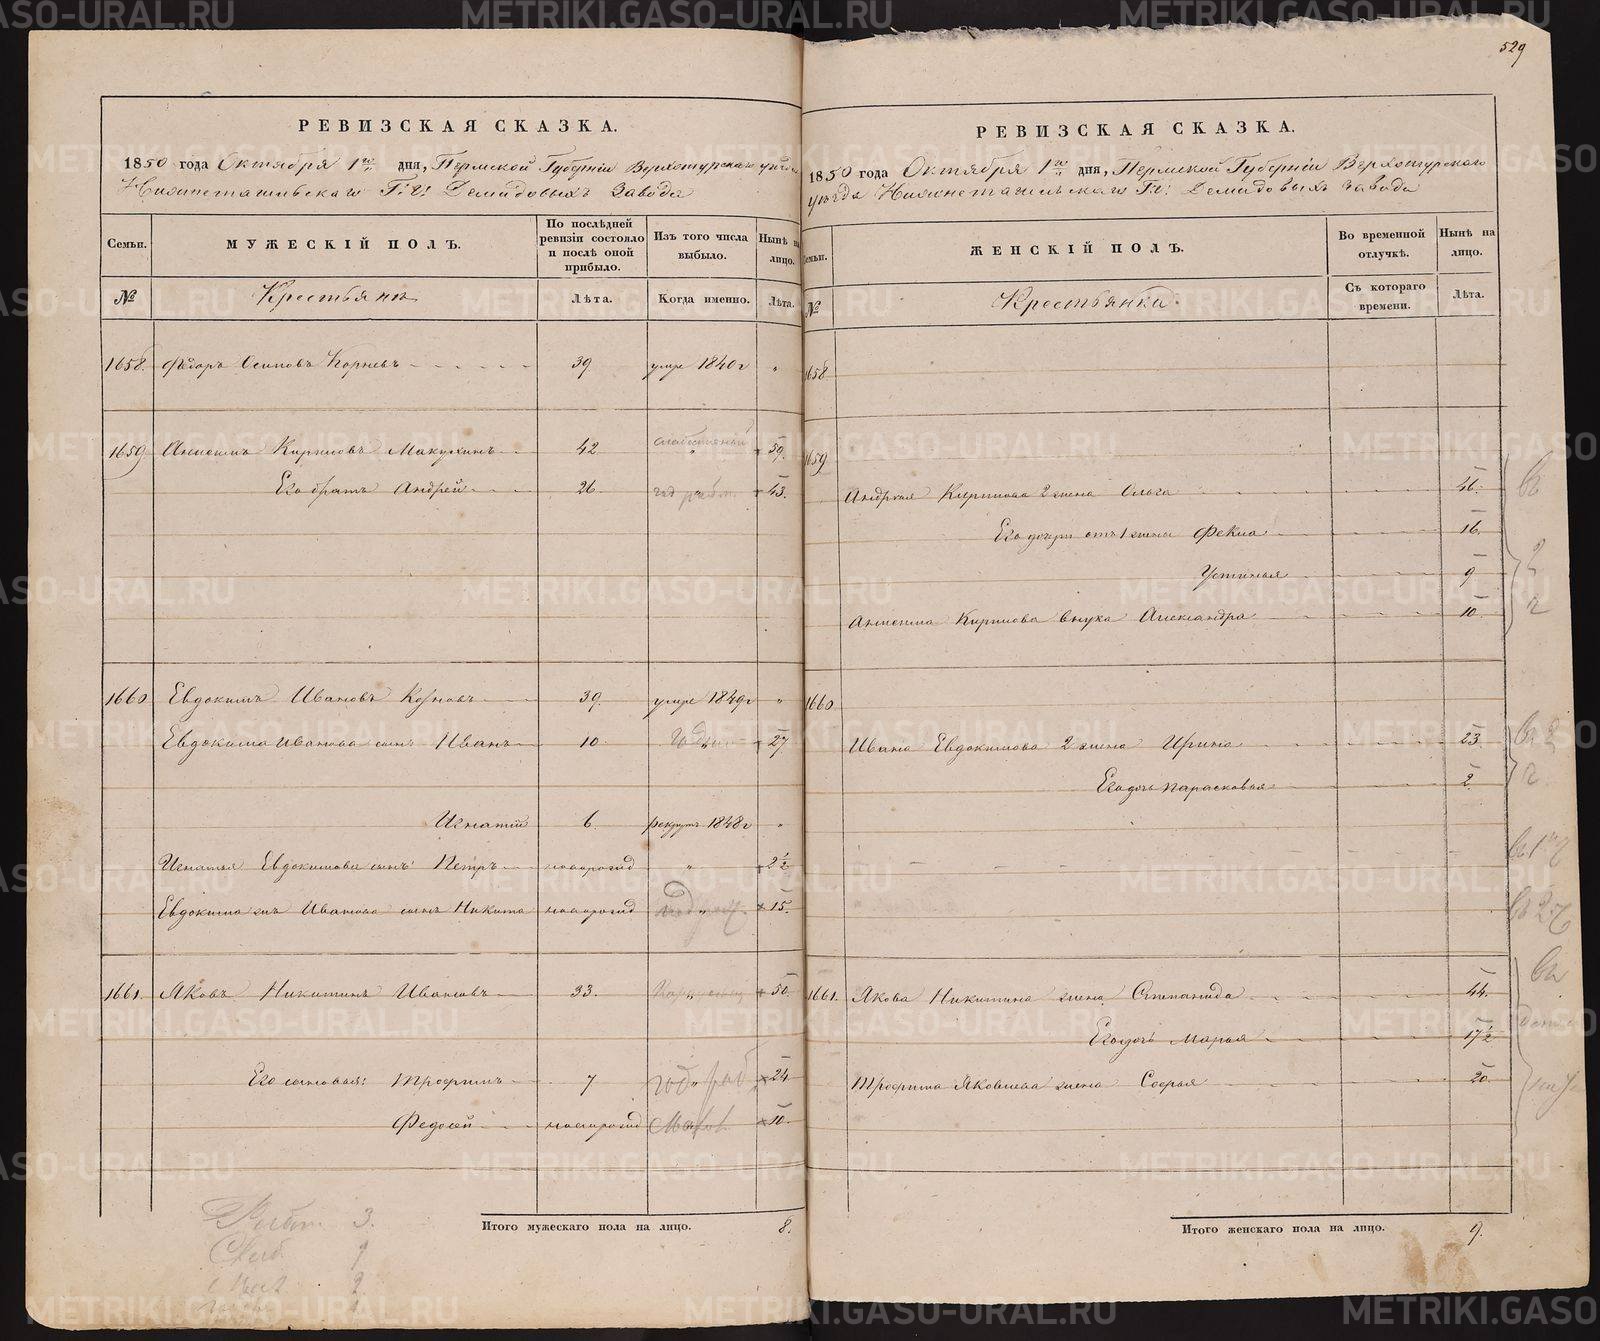 529
РЕВИЗСКАЯ СКАЗКА.
1850 года Октября 1го дня, Пермской Губернiи Верхотурскаго уѣзда
Нижнетагильскаго Г.г. Демидовыхъ Завода
Семьи.
МУЖЕСКIЙ ПОЛЪ.
По послѣдней ревизiи состояло и послѣ оной прибыло.
Изъ того числа выбыло.
Нынѣ на лицо.
№
Крестьяне
Лѣта.
Когда именно.
Лѣта.
1658. Ѳедоръ Осиповъ Корневъ 39 умре 1840г "
1659 Кириловъ Макухинъ 42 " 59.
Его братъ Андрей 26. год работ. 43.
1660 Евдокимъ Ивановъ 39. умре 1849г "
Евдокима Иванова сынъ Иванъ 10. 27
Игнатiй 6. рекрут 1848г "
Игнатья Евдокимова сынъ Петръ новорожд " 2½
Евдокима Иванова сынъ Никита новорожд " 15.
1661. Яковъ Никитинъ Ивановъ 33. " 50.
Его сыновья: Трофимъ 7 год раб 24
Федосей новорожд 10.
Итого мужескаго пола на лицо. 8.
Работ. 3.
РЕВИЗСКАЯ СКАЗКА.
1850 года Октября 1го дня, Пермской Губернiи Верхотурскаго
уѣзда Нижнетагильскаго Г.г. Демидовыхъ завода
Семьи.
ЖЕНСКIЙ ПОЛЪ.
Во временной отлучкѣ.
Нынѣ на лицо.
№
Крестьянки.
Съ котораго времени.
Лѣта.
1658
1659
Андрея Кирилова 2 жена Ольга 46.
Его дочери отъ 1 жены Фекла 16.
Устинья 9
Кирилова внука Александра 10.
1660
Ивана Евдокимова 2 жена Ирина 23.
Его дочь Парасковья 2.
1661. Якова Никитина жена Степанида 44.
Его дочь Марья 17½
Трофима Яковлева жена Софья 20.
Итого женскаго пола на лицо. 9.
METRIKI.GASO-URAL.RU